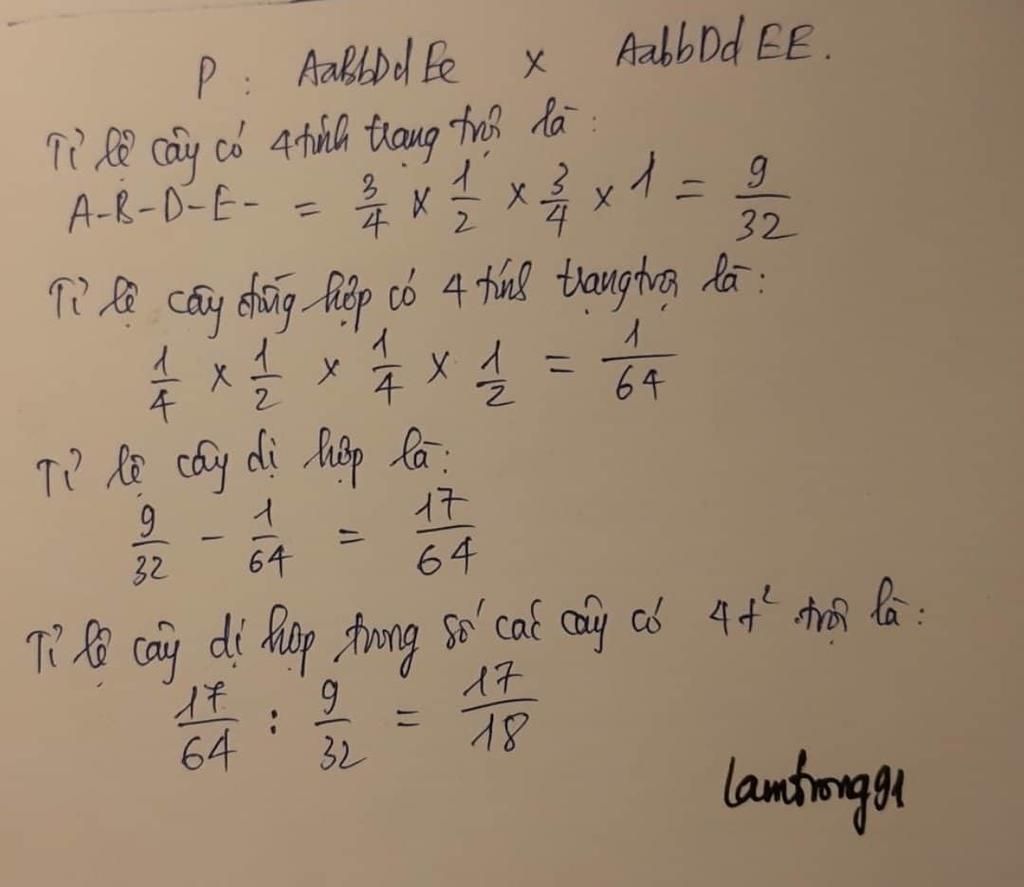 P : AaBbDdEe x AabbDdEE.
Tỉ lệ cây có 4 tính trạng trội là:
A-B-D-E- = 3/4 x 1/2 x 3/4 x 1 = 9/32
Tỉ lệ cây đồng hợp có 4 tính trạng trội là:
1/4 x 1/2 x 1/4 x 1/2 = 1/64
Tỉ lệ cây dị hợp là:
9/32 - 1/64 = 17/64
Tỉ lệ cây dị hợp trong số các cây có 4t² trội là:
17/64 : 9/32 = 17/18
lamtrong91